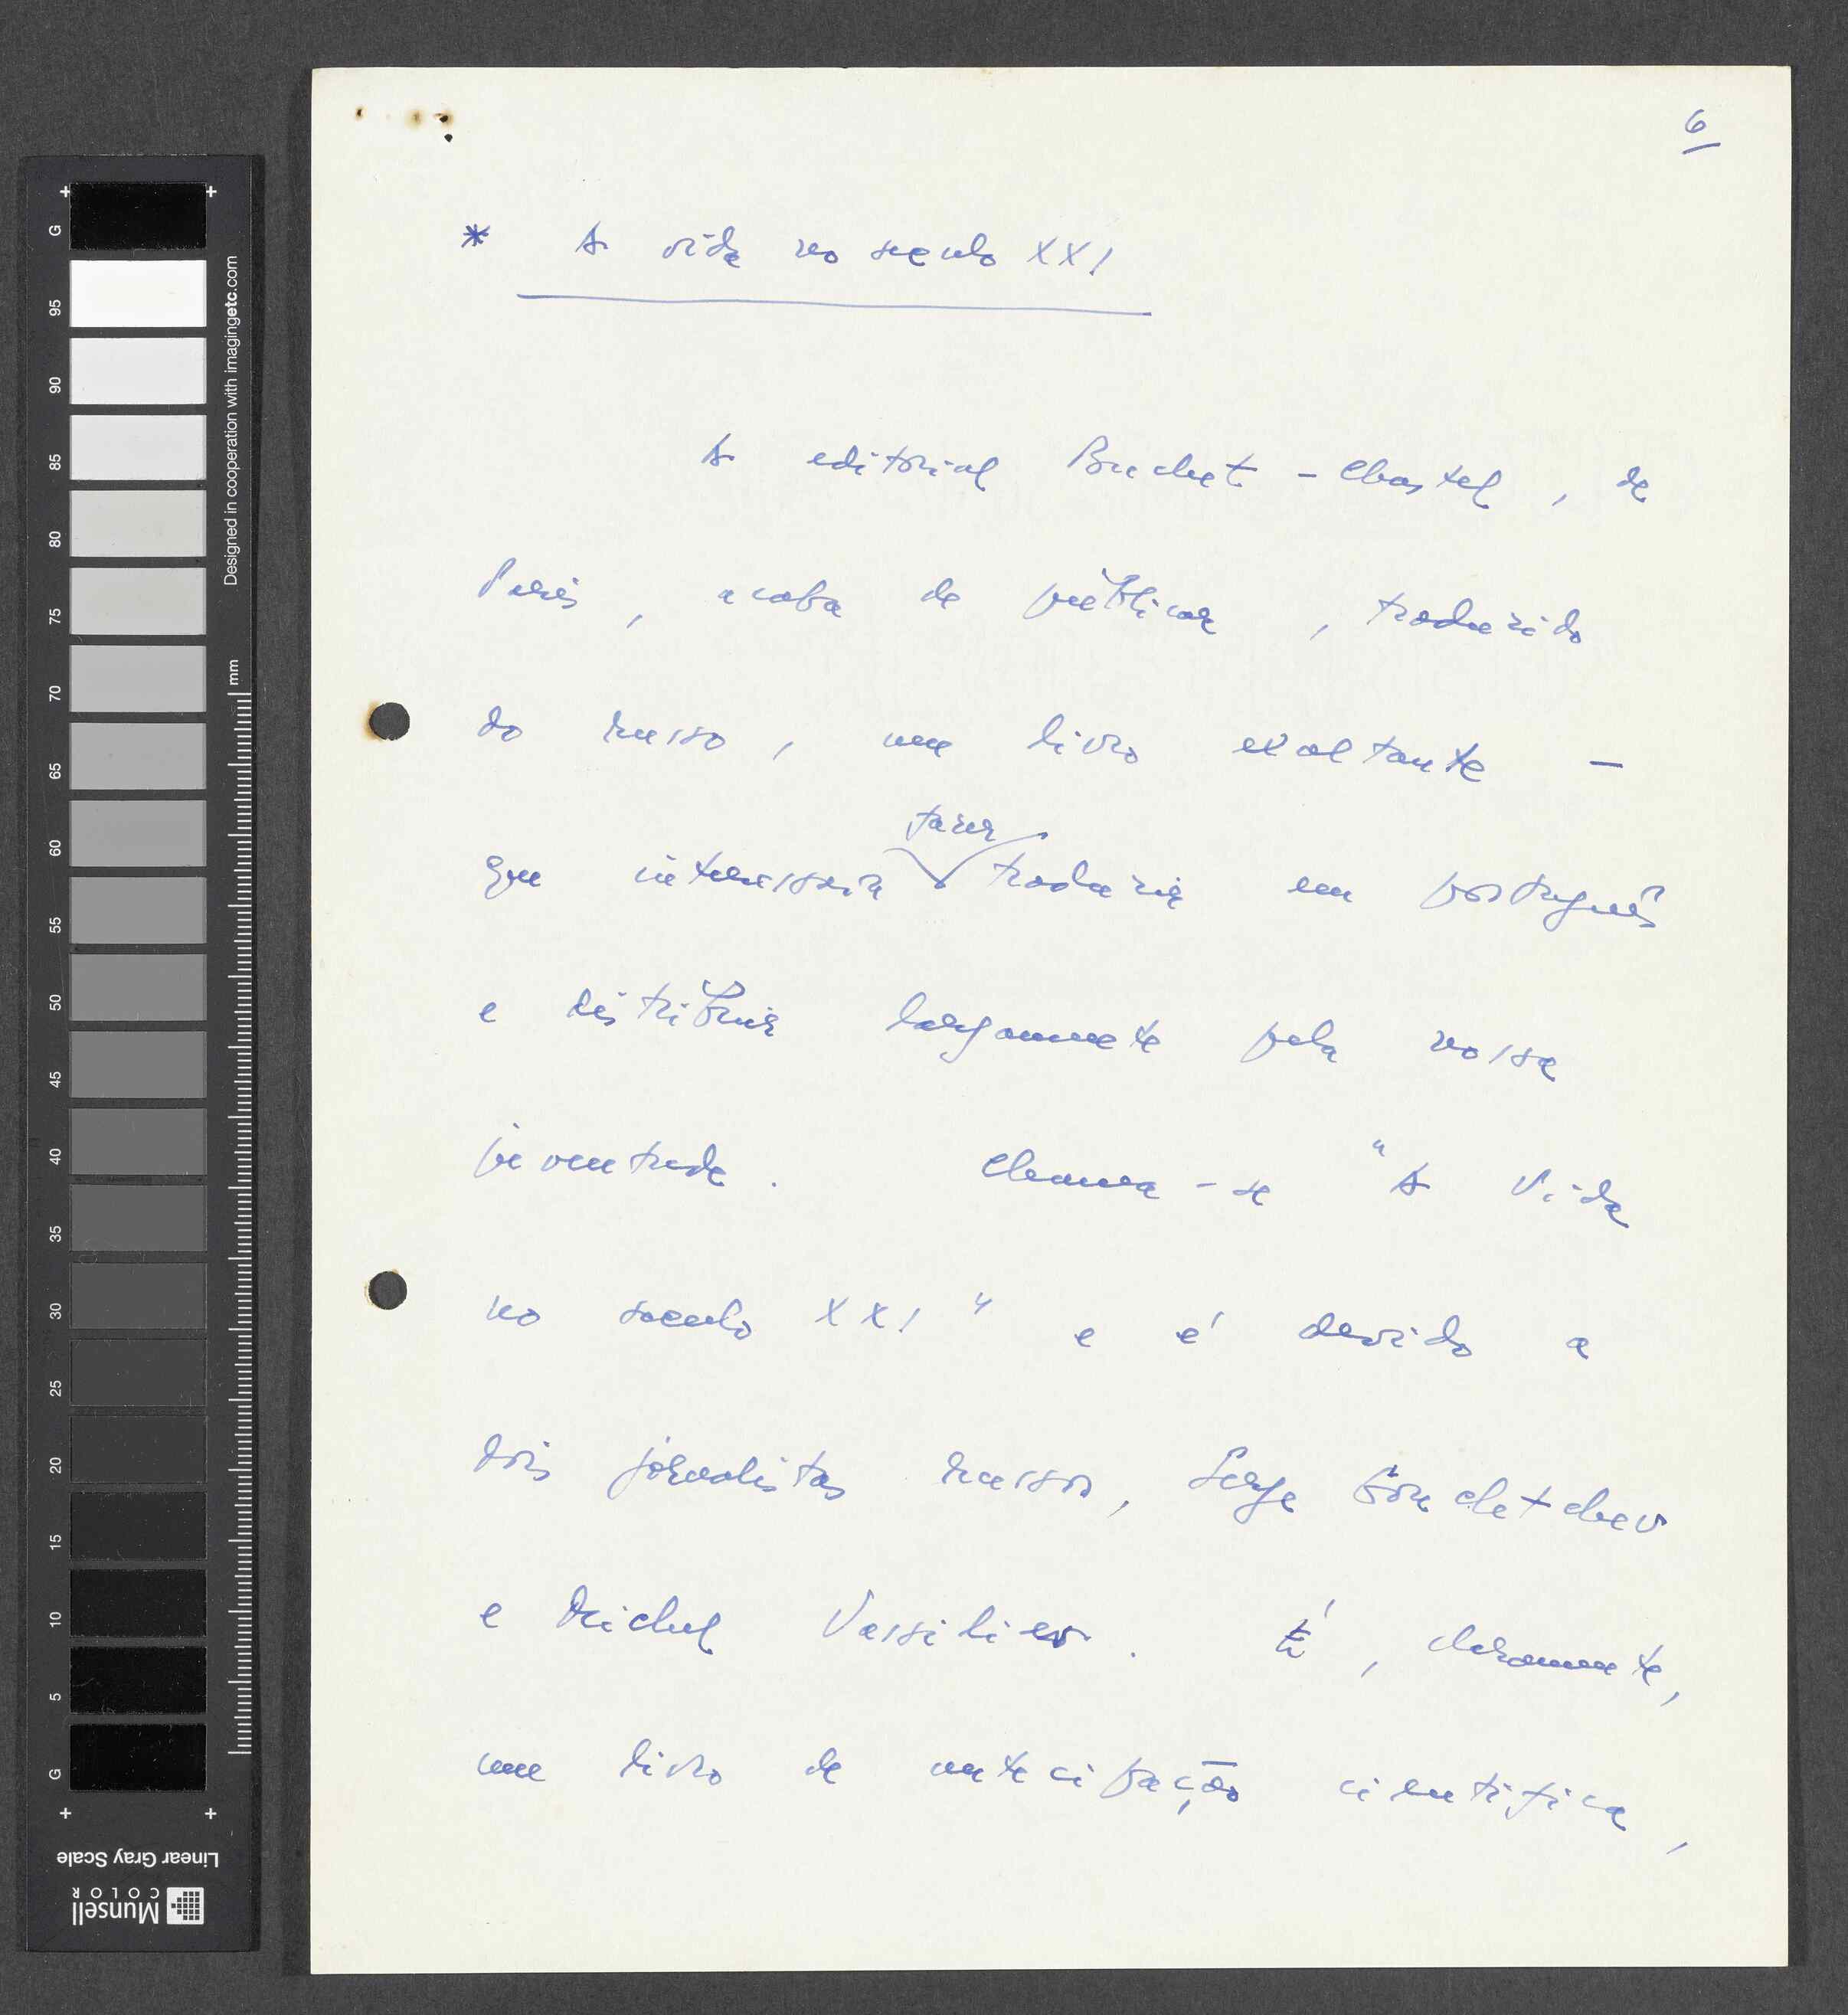 6
* A vida no seculo XXI
A editorial Buchet - Chastel, de
Paris, acaba de públicar, traduzido
do russo, um livro exaltante -
fazer
que interessaria traduzir em português
e distribuir largamente pela nossa
juventude. Chama-se "A Vida
no seculo XXI" e é devido a
dois jornalistas russos, Serge
e Michel Vassiliev. É, claramente,
um livro de antecipação cientifica,
G
95
90
85
80
75
70
65
60
55
50
45
40
35
30
25
20
15
10
5
G
Designed in cooperation with imagingetc.com
mm
Linear Gray Scale
Munsell
COLOR